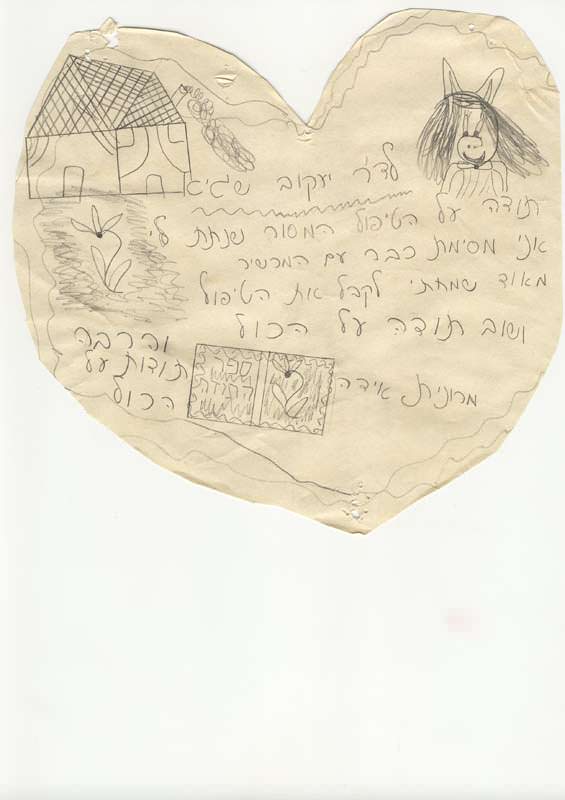 לד״ר יעקב שגיא
תודה על הטיפול המסור שנתת לי
אני מסימת כבר עם המכשיר
מאוד שמחתי לקבל את הטיפול
ושוב תודה על הכול
מרונית אידה
והרבה
תודות על
הכול
ספר
התודות